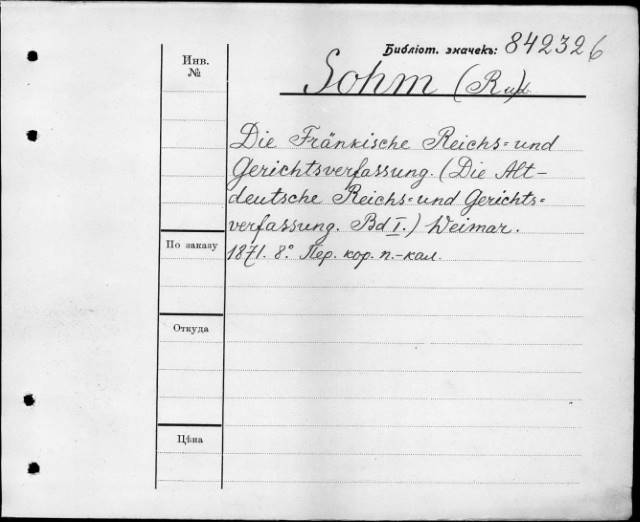 Библіот. значекъ: 842326
Инв. №
Sohm (Rud.
Die Fränkische Reichs= und
Gerichtsverfassung. (Die Alt-
deutsche Reichs= und Gerichts=
verfassung. Bd I.) Weimar.
По заказу
1871. 8.° Пер. кор. п.-кал.
Откуда
Цѣна